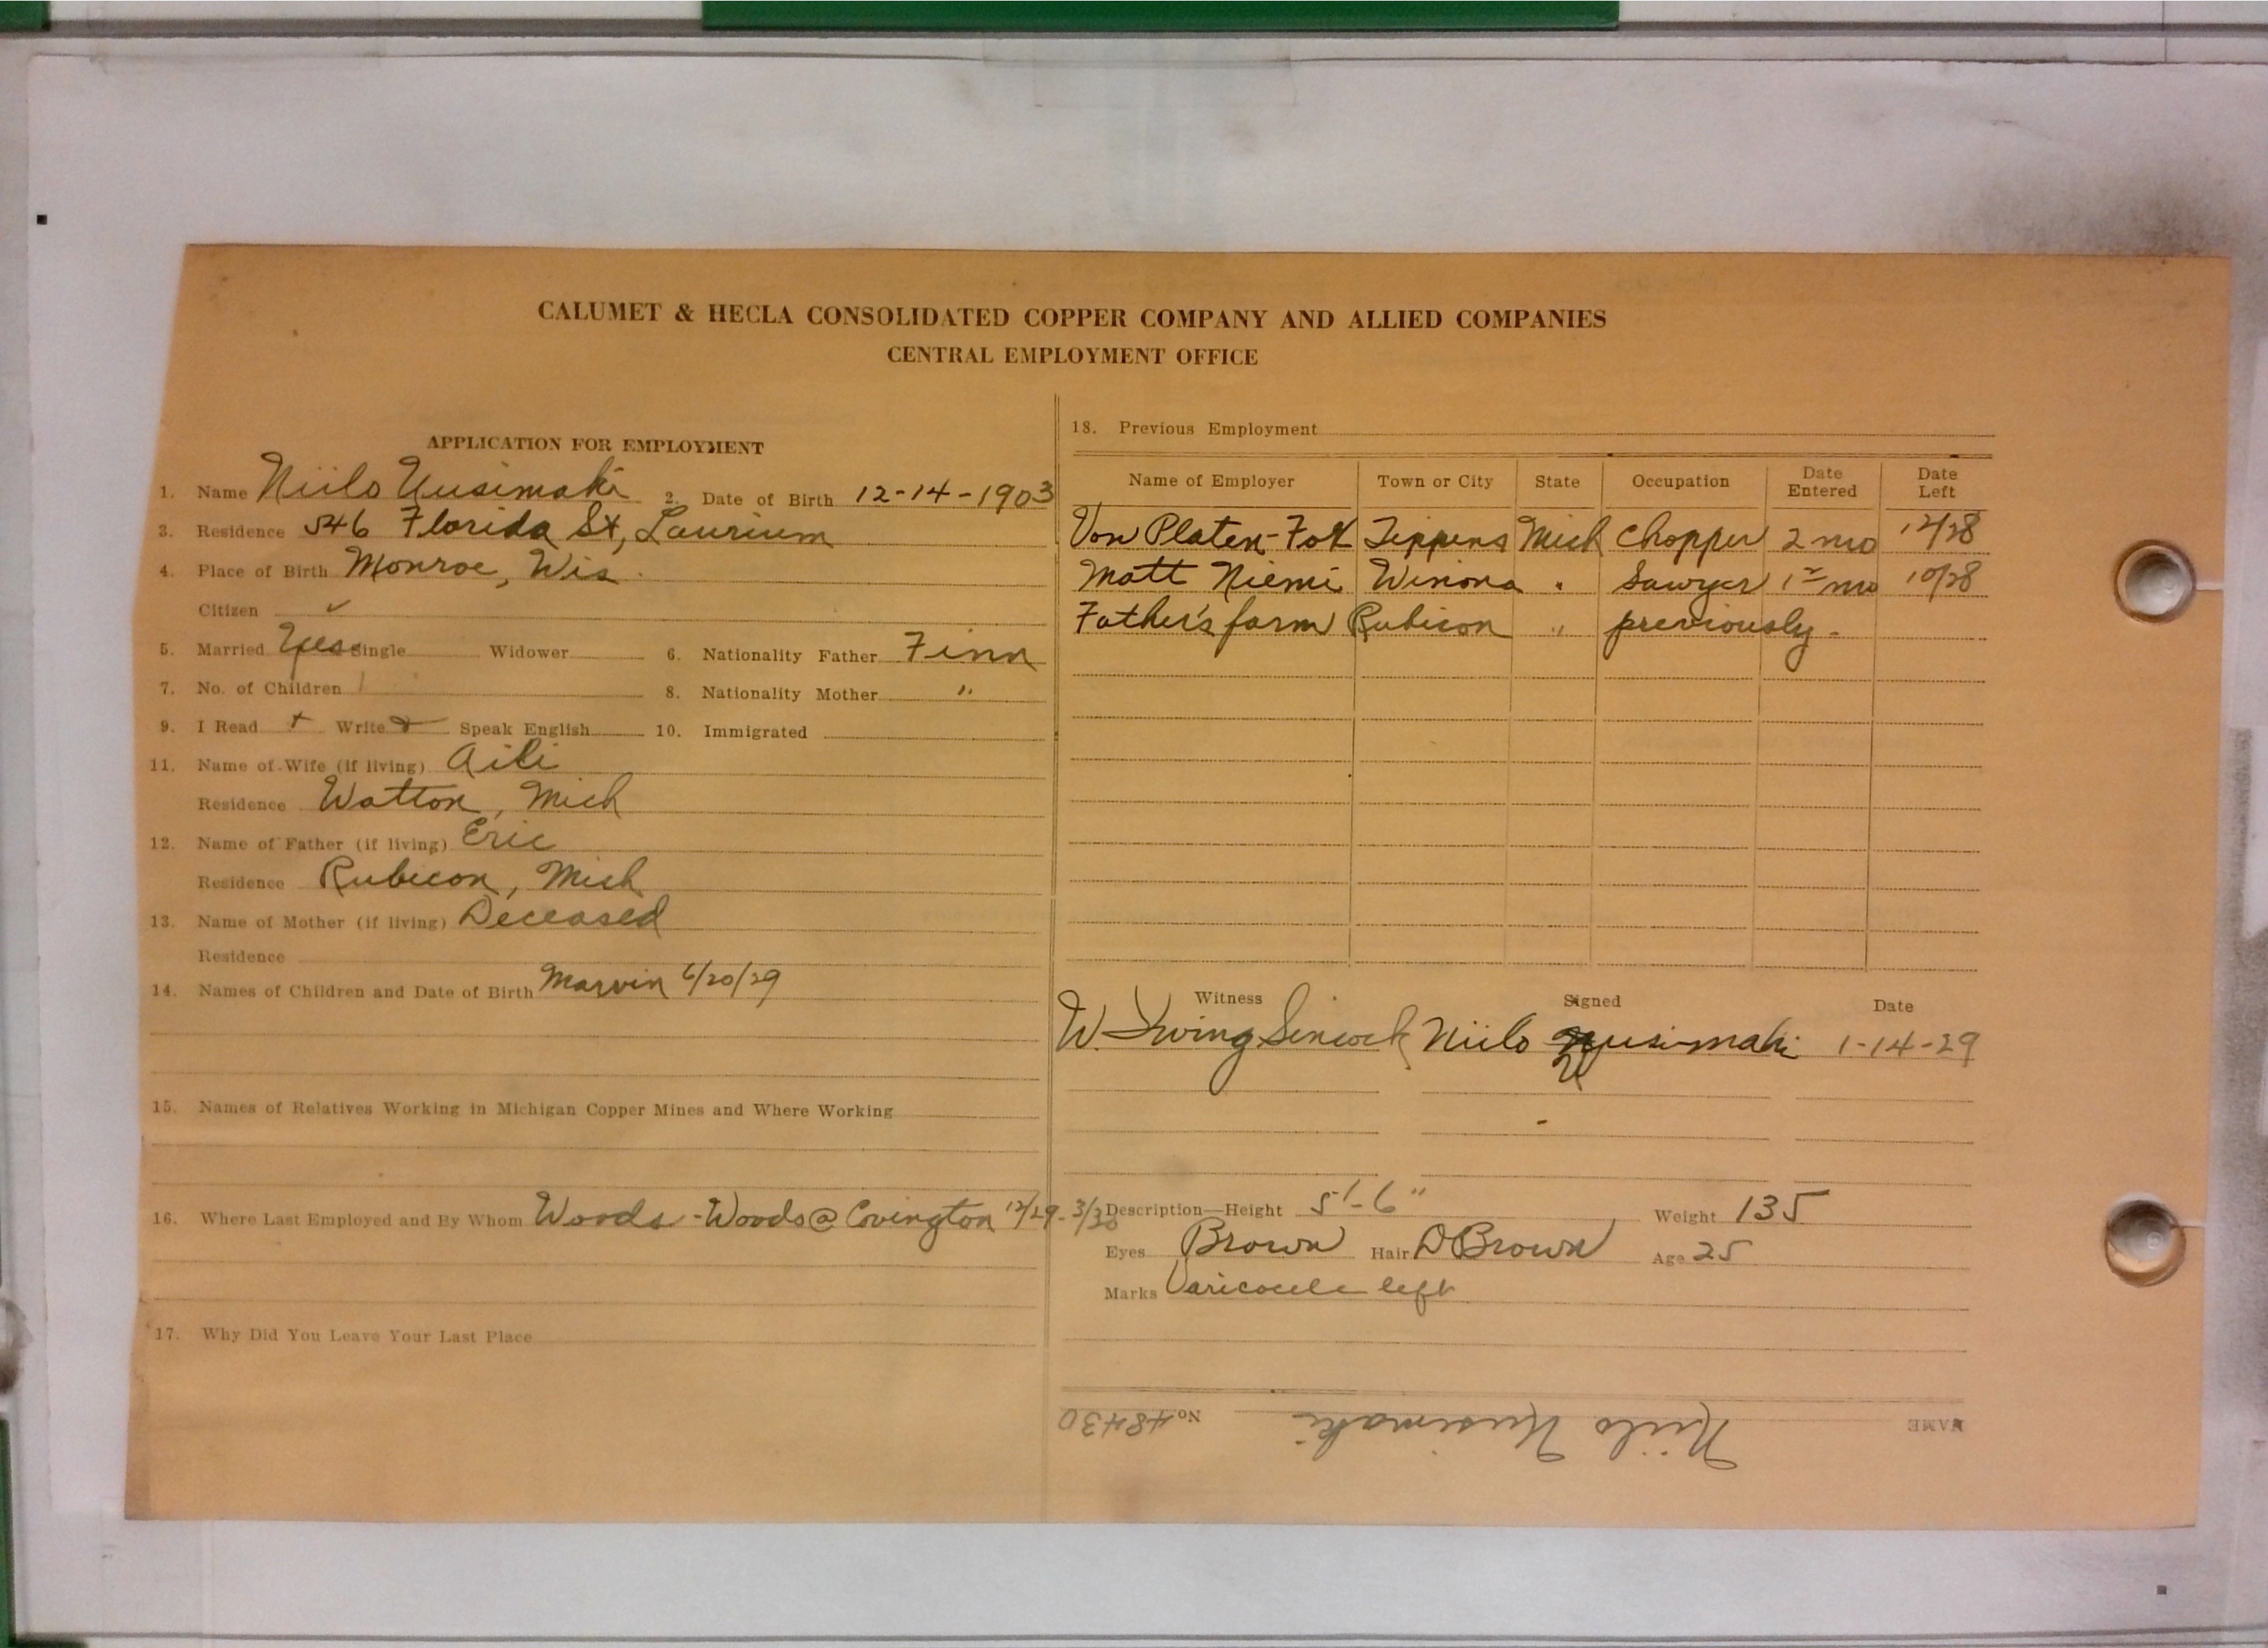 CALUMET & HECLA CONSOLIDATED COPPER COMPANY AND ALLIED COMPANIES
CENTRAL EMPLOYMENT OFFICE
APPLICATION FOR EMPLOYMENT
1. Name Niilo Uusimaki 2. Date of Birth 12-14-1903
3. Residence 546 Florida St, Laurium
4. Place of Birth Monroe, Wis.
Citizen ✓
5. Married Yes Single Widower 6. Nationality Father Finn
7. No. of Children 1 8. Nationality Mother "
9. I Read + Write + Speak English 10. Immigrated
11. Name of Wife (if living) Aili
Residence Watton, Mich
12. Name of Father (if living) Eric
Residence Rubicon, Mich
13. Name of Mother (if living) Deceased
Residence
14. Names of Children and Date of Birth Marvin 6/20/29
15. Names of Relatives Working in Michigan Copper Mines and Where Working
16. Where Last Employed and By Whom Woods - Woods @ Covington 12/29-3/30
17. Why Did You Leave Your Last Place
18. Previous Employment
Name of Employer Town or City State Occupation Date Entered Date Left
Von Platen-Fox Mich Chopper 2 mo 12/28
Matt Niemi Winona " Sawyer mo 10/28
Father's farm Rubicon " previously.
Witness Signed Date
W. Irving Sincock Niilo Uusimaki 1-14-29
Description—Height 5'-6" Weight 135
Eyes Brown Hair D Brown Age 25
Marks Varicocele left
NAME Niilo Uusimaki No 48430